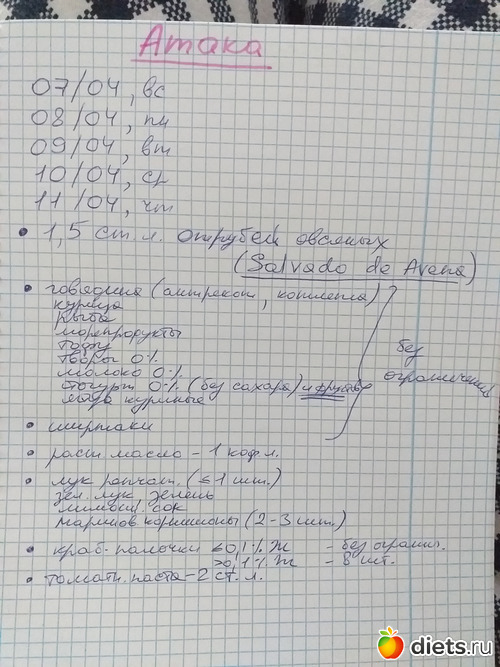 Атака
07/04, вс
08/04, пн
09/04, вт
10/04, ср
11/04, чт
• 1,5 ст. л. отрубей овсяных
(Salvado de Avena)
• говядина (антрекот, котлета)
курица
рыба
морепродукты
тофу
творог 0%
молоко 0%
йогурт 0% (без сахара) и фруктов
яйца куриные
без
ограничений
• ширтаки
• раст. масло – 1 коф л.
• лук репчат. (≤ 1 шт.)
зел. лук, зелень
лимон. сок
маринов корнишоны (2-3 шт.)
• краб. палочки ≤0,1% Ж – без огранич.
>0,1% Ж – 8 шт.
• томатн. паста – 2 ст. л.
diets.ru